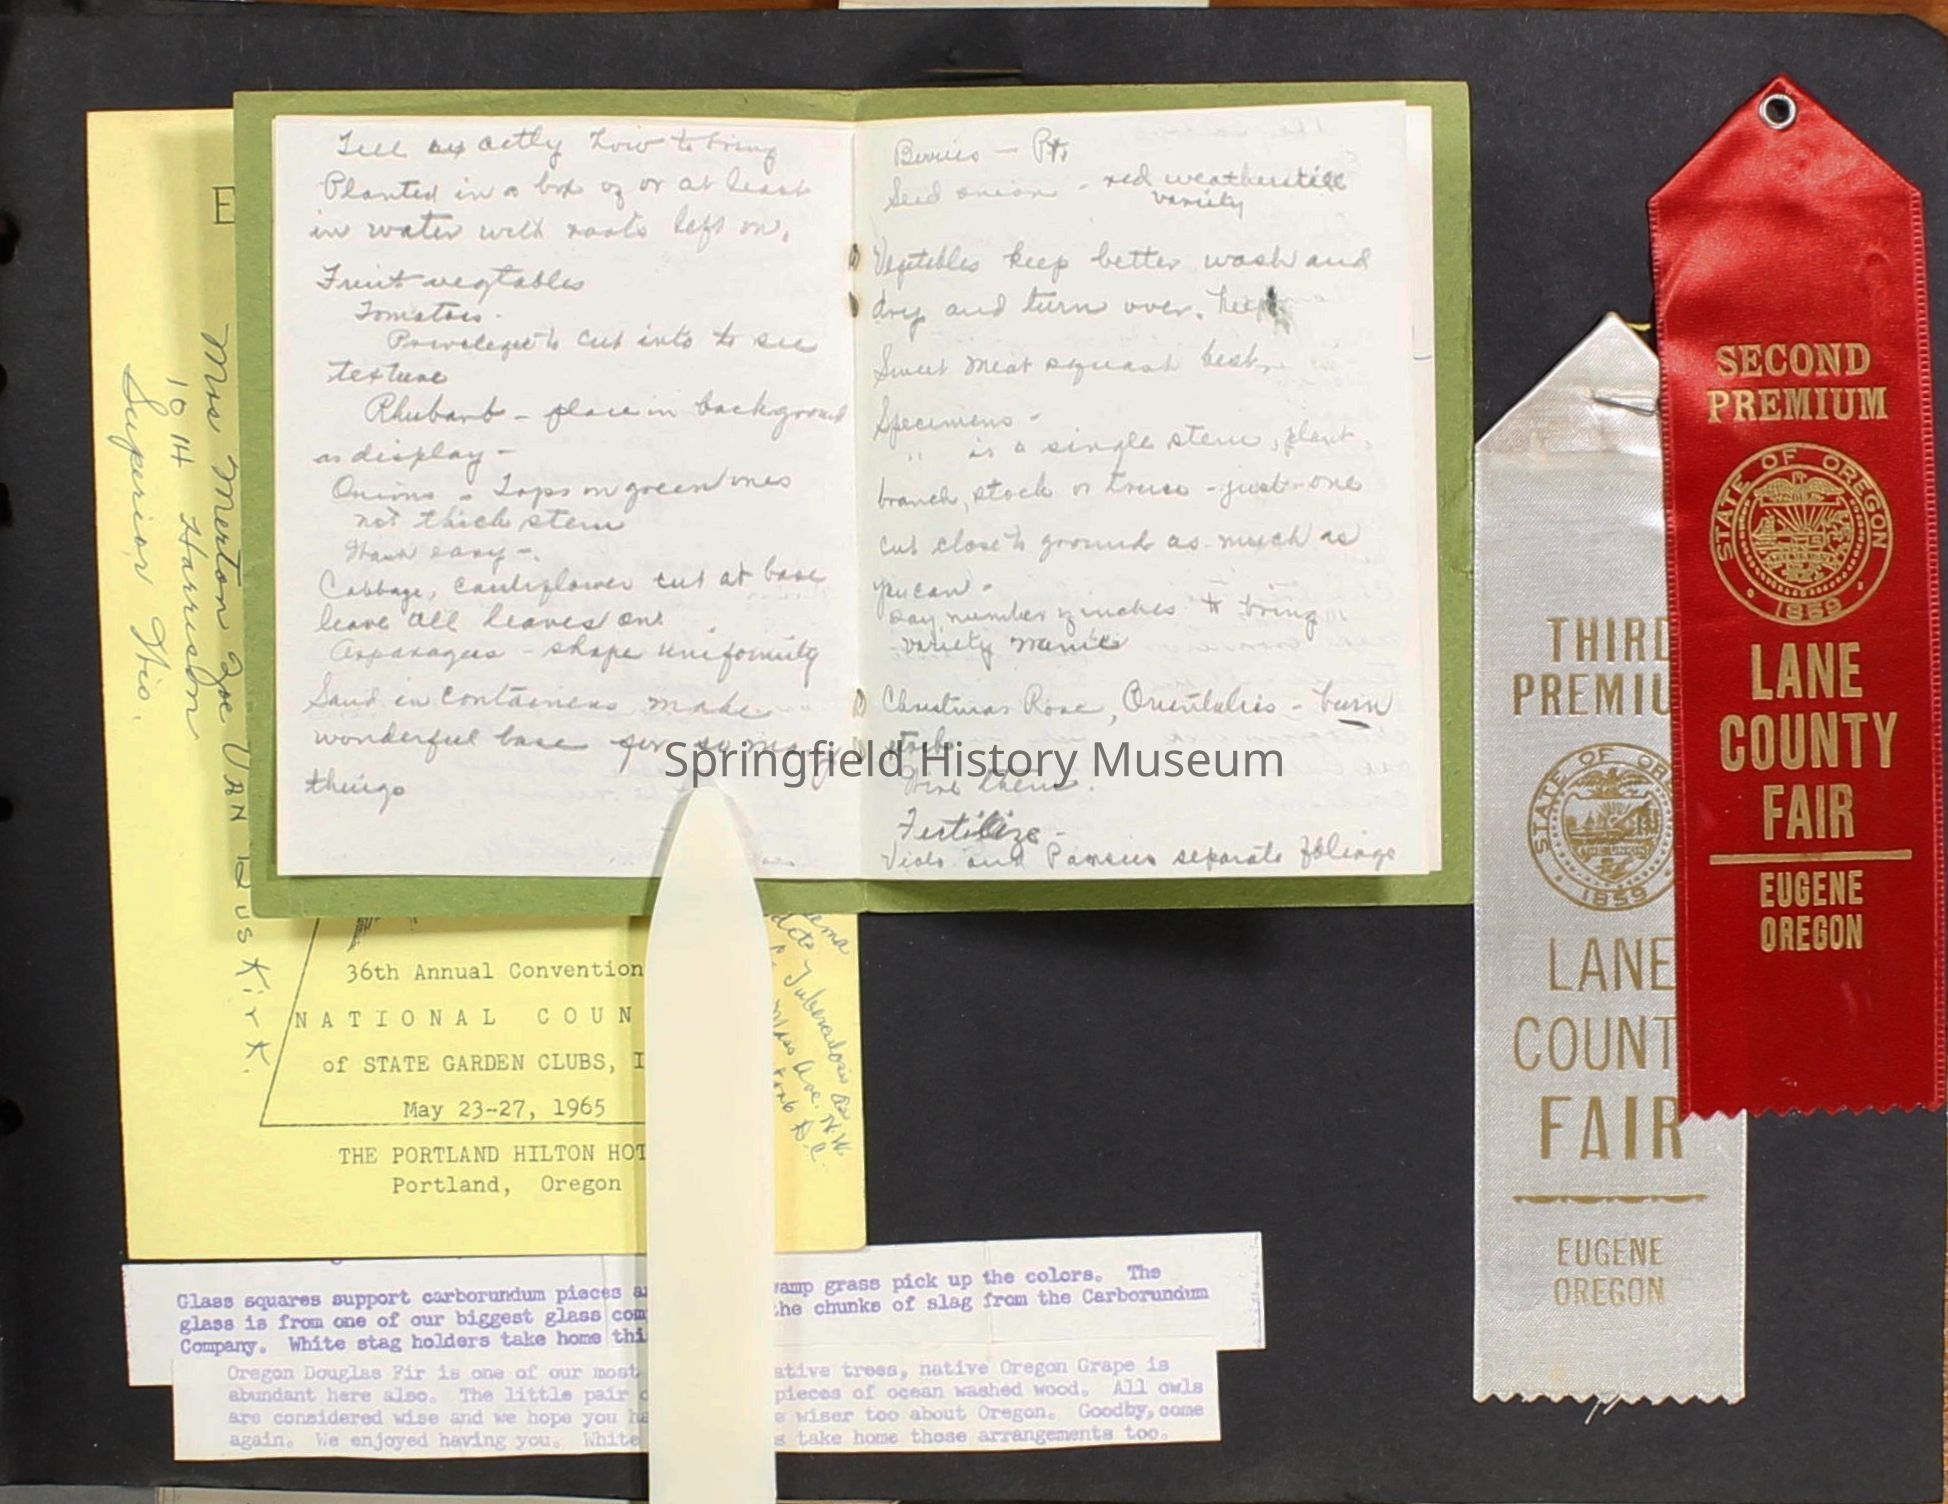 Tell exactly how to bring
Planted in a box of or at least
in water with roots left on.
Fruit vegtables
Tomatoes.
Privelege to cut into to see
texture
Rhubarb - place in background
as display -
Onions - Tops on green ones
not thick stem
easy -.
Cabbage, cauliflower cut at base
leave all leaves on.
Asparagus - shape uniformity
Sand in containers make
wonderful base for so many
things
Berries - Pts
Seed onion - red
variety
Vegetables keep better wash and
dry and turn over.
Sweet meat squash best.
Specimens -
" is a single stem, plant,
branch, stock or truss - just one
cut close to ground as much as
you can -
say number of inches to bring
- variety
Christmas Rose, Orientalis - burn
them.
Fertilize -
Viola and Pansies separate foliage
Springfield History Museum
E
Mrs Merton Zoe VAN BUSKirK
1014 Harrison
Superior Wis.
36th Annual Convention
NATIONAL COUN
of STATE GARDEN CLUBS, I
May 23-27, 1965
THE PORTLAND HILTON HOT
Portland, Oregon
Tuberculosis
Mass Ave. N.W.
D.C.
Glass squares support carborundum pieces a wamp grass pick up the colors. The
glass is from one of our biggest glass com he chunks of slag from the Carborundum
Company. White stag holders take home thi
Oregon Douglas Fir is one of our most ative trees, native Oregon Grape is
abundant here also. The little pair pieces of ocean washed wood. All owls
are considered wise and we hope you ha e wiser too about Oregon. Goodby, come
again. We enjoyed having you. White s take home those arrangements too.
THIRD
PREMIU
STATE OF ORE
1859
LANE
COUNT
FAIR
EUGENE
OREGON
SECOND
PREMIUM
STATE OF OREGON
1859
LANE
COUNTY
FAIR
EUGENE
OREGON